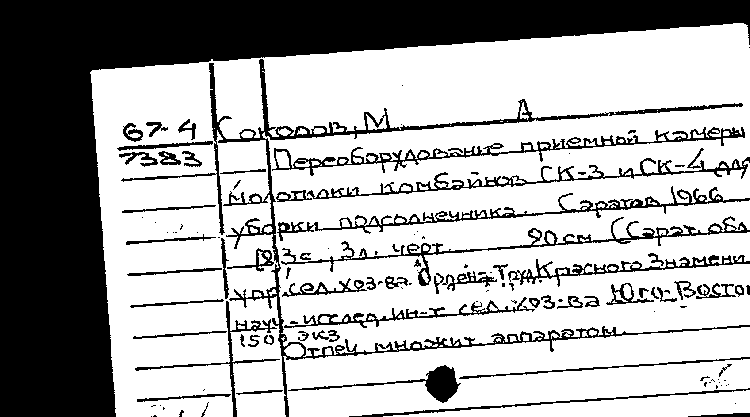 67-4 Соколов, М А
7383 Переоборудование приемной камеры
молотилки комбайнов СК-3 и СК-4 для
уборки подсолнечника. Саратов, 1966
3 с., 3 л. черт. 20 см (Сарат. обл.
упр. сел. хоз-ва Ордена Труд. Красного Знамени
науч.-исслед. ин-т сел. хоз-ва Юго-Восто
1500 экз
Отпеч. множит. аппаратом.